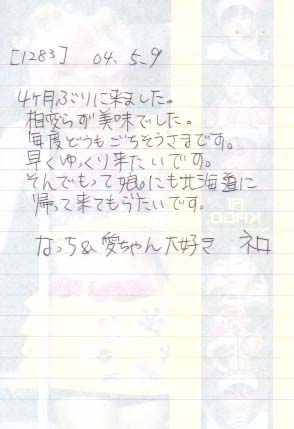 [1283] 04. 5.9
4ヶ月ぶりに来ました。
相変らず美味でした。
毎度どうもごちそうさまです。
早くゆっくり来たいです。
そんでもって娘。にも北海道に
帰って来てもらいたいです。
なっち&愛ちゃん大好き ネロ
AI
KAGO